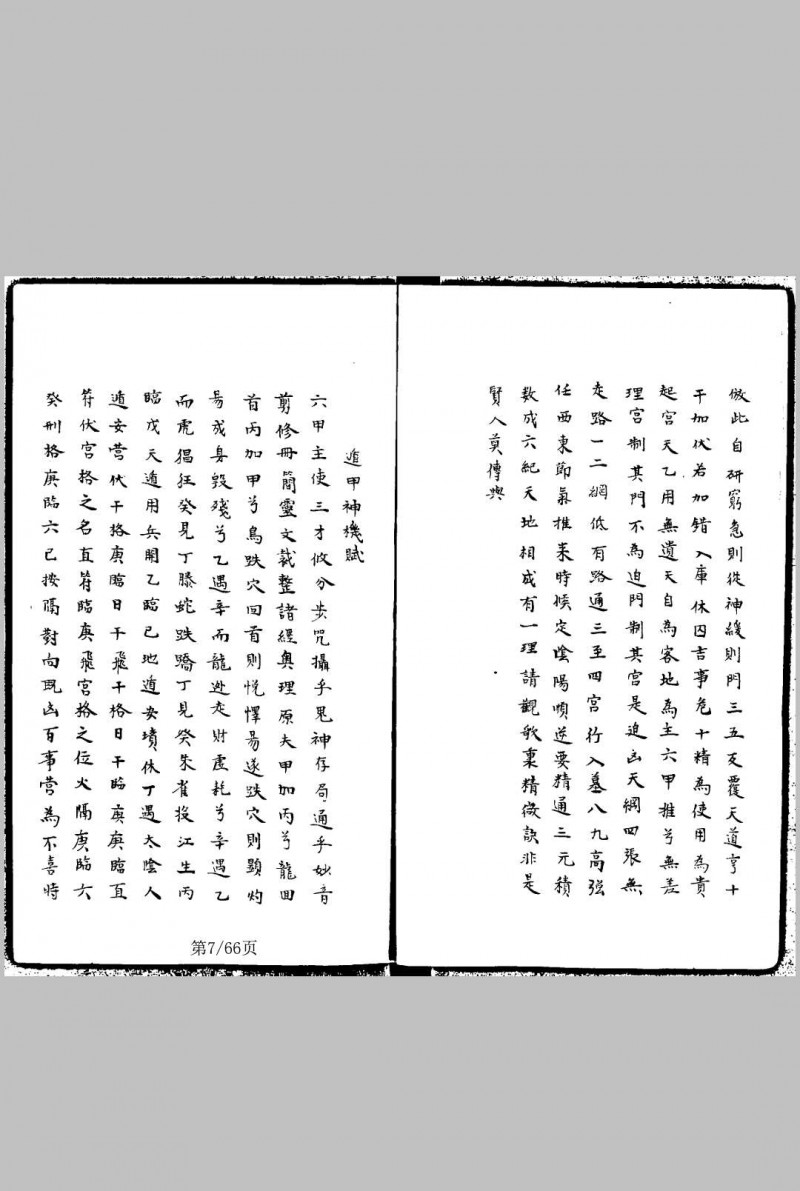 倣此自研窮急則從神緩則門三五反覆天道亨十
干加伏若加錯入庫休囚吉事危十精為使用為貴
起宮天乙用無遺天自為客地為主六甲推兮無差
理宮制其門不為迫門制其宮是迫凶天網四張無
走路一二網低有路通三至四宮行入墓八九高強
任西東節氣推來時候定陰陽順逆要精通三元積
数成六紀天地相成有一理請觀歌裏精微訣非是
賢人莫傳與
遁甲神機賦
六甲主使三才攸分步咒攝乎鬼神存局通乎妙音
剪修冊簡靈文裁整諸經奧理原夫甲加丙兮龍回
首丙加甲兮鳥跌穴回首則悅懌易遂跌穴則顯灼
易成身毀殘兮乙遇辛而龍逃走財虛耗兮辛遇乙
而虎猖狂癸見丁騰蛇跌蹻丁見癸朱雀投江生丙
臨戊天遁用兵開乙臨已地遁安墳休丁遇太陰人
遁安營伏干格庚臨日干飛干格日干臨庚庚臨直
符伏宮格之名直符臨庚飛宮格之位火隔庚臨六
癸刑格庚臨六已按隔對向既凶百事營為不喜時
第7/66页